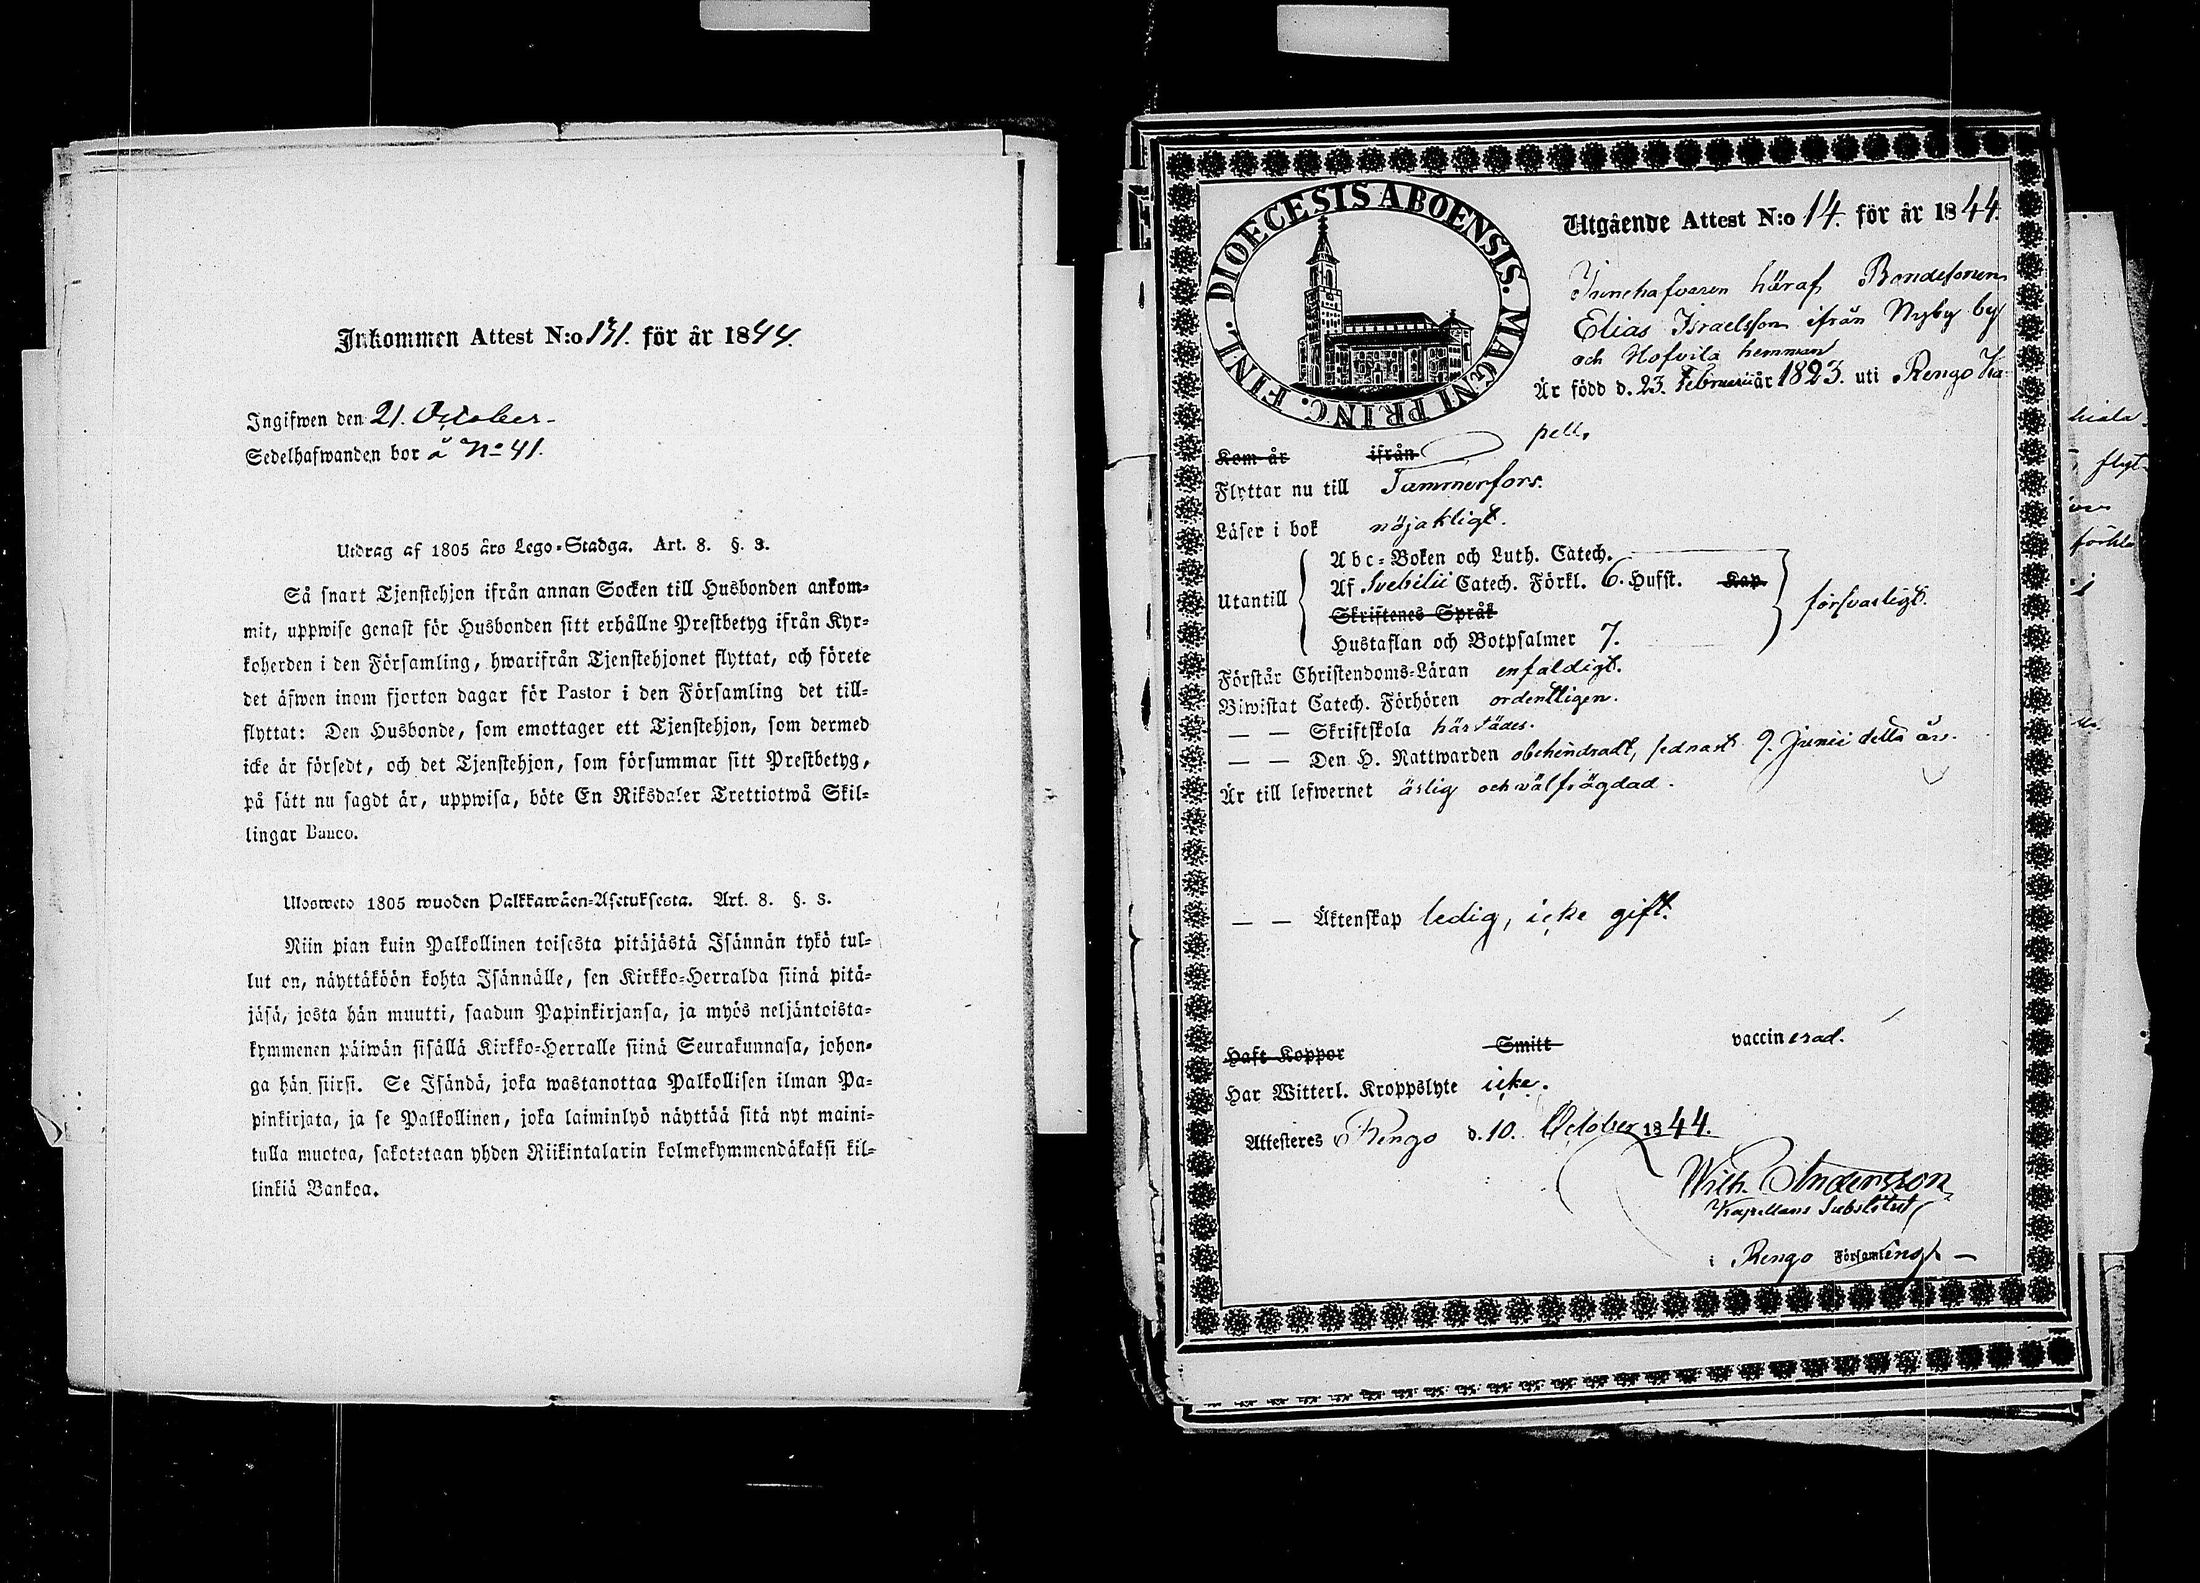 Inkommen Attest N:o 131. för år 1844.
Ingifwen den 21. October.
Sedelhafwanden bor å No 41.
Utdrag af 1805 års Lego-Stadga. Art. 8. §. 3.
Så snart Tjenstehjon ifrån annan Socken till Husbonden ankom-
mit, uppwise genast för Husbonden sitt erhållne Prestbetyg ifrån Kyr-
koherden i den Församling, hwarifrån Tjenstehjonet flyttat, och förete
det äfwen inom fjorton dagar för Pastor i den Församling det till-
flyttat: Den Husbonde, som emottager ett Tjenstehjon, som dermed
icke är försedt, och det Tjenstehjon, som försummar sitt Prestbetyg,
på sätt nu sagdt är, uppwisa, böte En Riksdaler Trettiotwå Skil-
lingar Banco.
Ulosweto 1805 wuoden Palkkawäen-Asetuksesta. Art. 8. §. 3.
Niin pian kuin Palkollinen toisesta pitäjästä Isännän tykö tul-
lut on, näyttäköön kohta Isännälle, sen Kirkko-Herralda siinä pitä-
jäsä, josta hän muutti, saadun Papinkirjansa, ja myös neljäntoista-
kymmenen päiwän sisällä Kirkko-Herralle siinä Seurakunnasa, johon-
ga hän siirsi. Se Isändä, joka wastanottaa Palkollisen ilman Pa-
pinkirjata, ja se Palkollinen, joka laiminlyö näyttää sitä nyt maini-
tulla muotoa, sakotetaan yhden Riikintalarin kolmekymmendäkaksi kil-
linkiä Bankoa.
DIOECESIS ABOENSIS. MAGNI PRINC. FINL.
Utgående Attest N:o 14. för år 1844.
Innehafvaren häraf Bondesonen
Elias Israelsson ifrån Nyby by
och Hofvila hemman
Är född d. 23. Februarii år 1823. uti Rengo Ka-
pell.
Kom år ifrån
Flyttar nu till Tammerfors.
Läser i bok nöjaktligt.
Utantill
Abc-Boken och Luth. Catech.
Af Svebilii Catech. Förkl. 6. Hufst. Kap.
Skriftenes Språk
Hustaflan och Botpsalmer 7.
försvarligt.
Förstår Christendoms-Läran enfaldigt.
Biwistat Catech. Förhören ordentligen.
— — Skriftskola härstädes.
— — Den H. Nattwarden obehindradt, sednast 9. Junii detta års.
Är till lefwernet ärlig och välfrägdad.
— — Äktenskap ledig, icke gift.
Haft Koppor Smitt vaccinerad.
Har Witterl. Kroppslyte icke.
Attesteres Rengo d. 10. October 1844.
Wilh. Andersson
Kapellans Substitut
i Rengo Församling